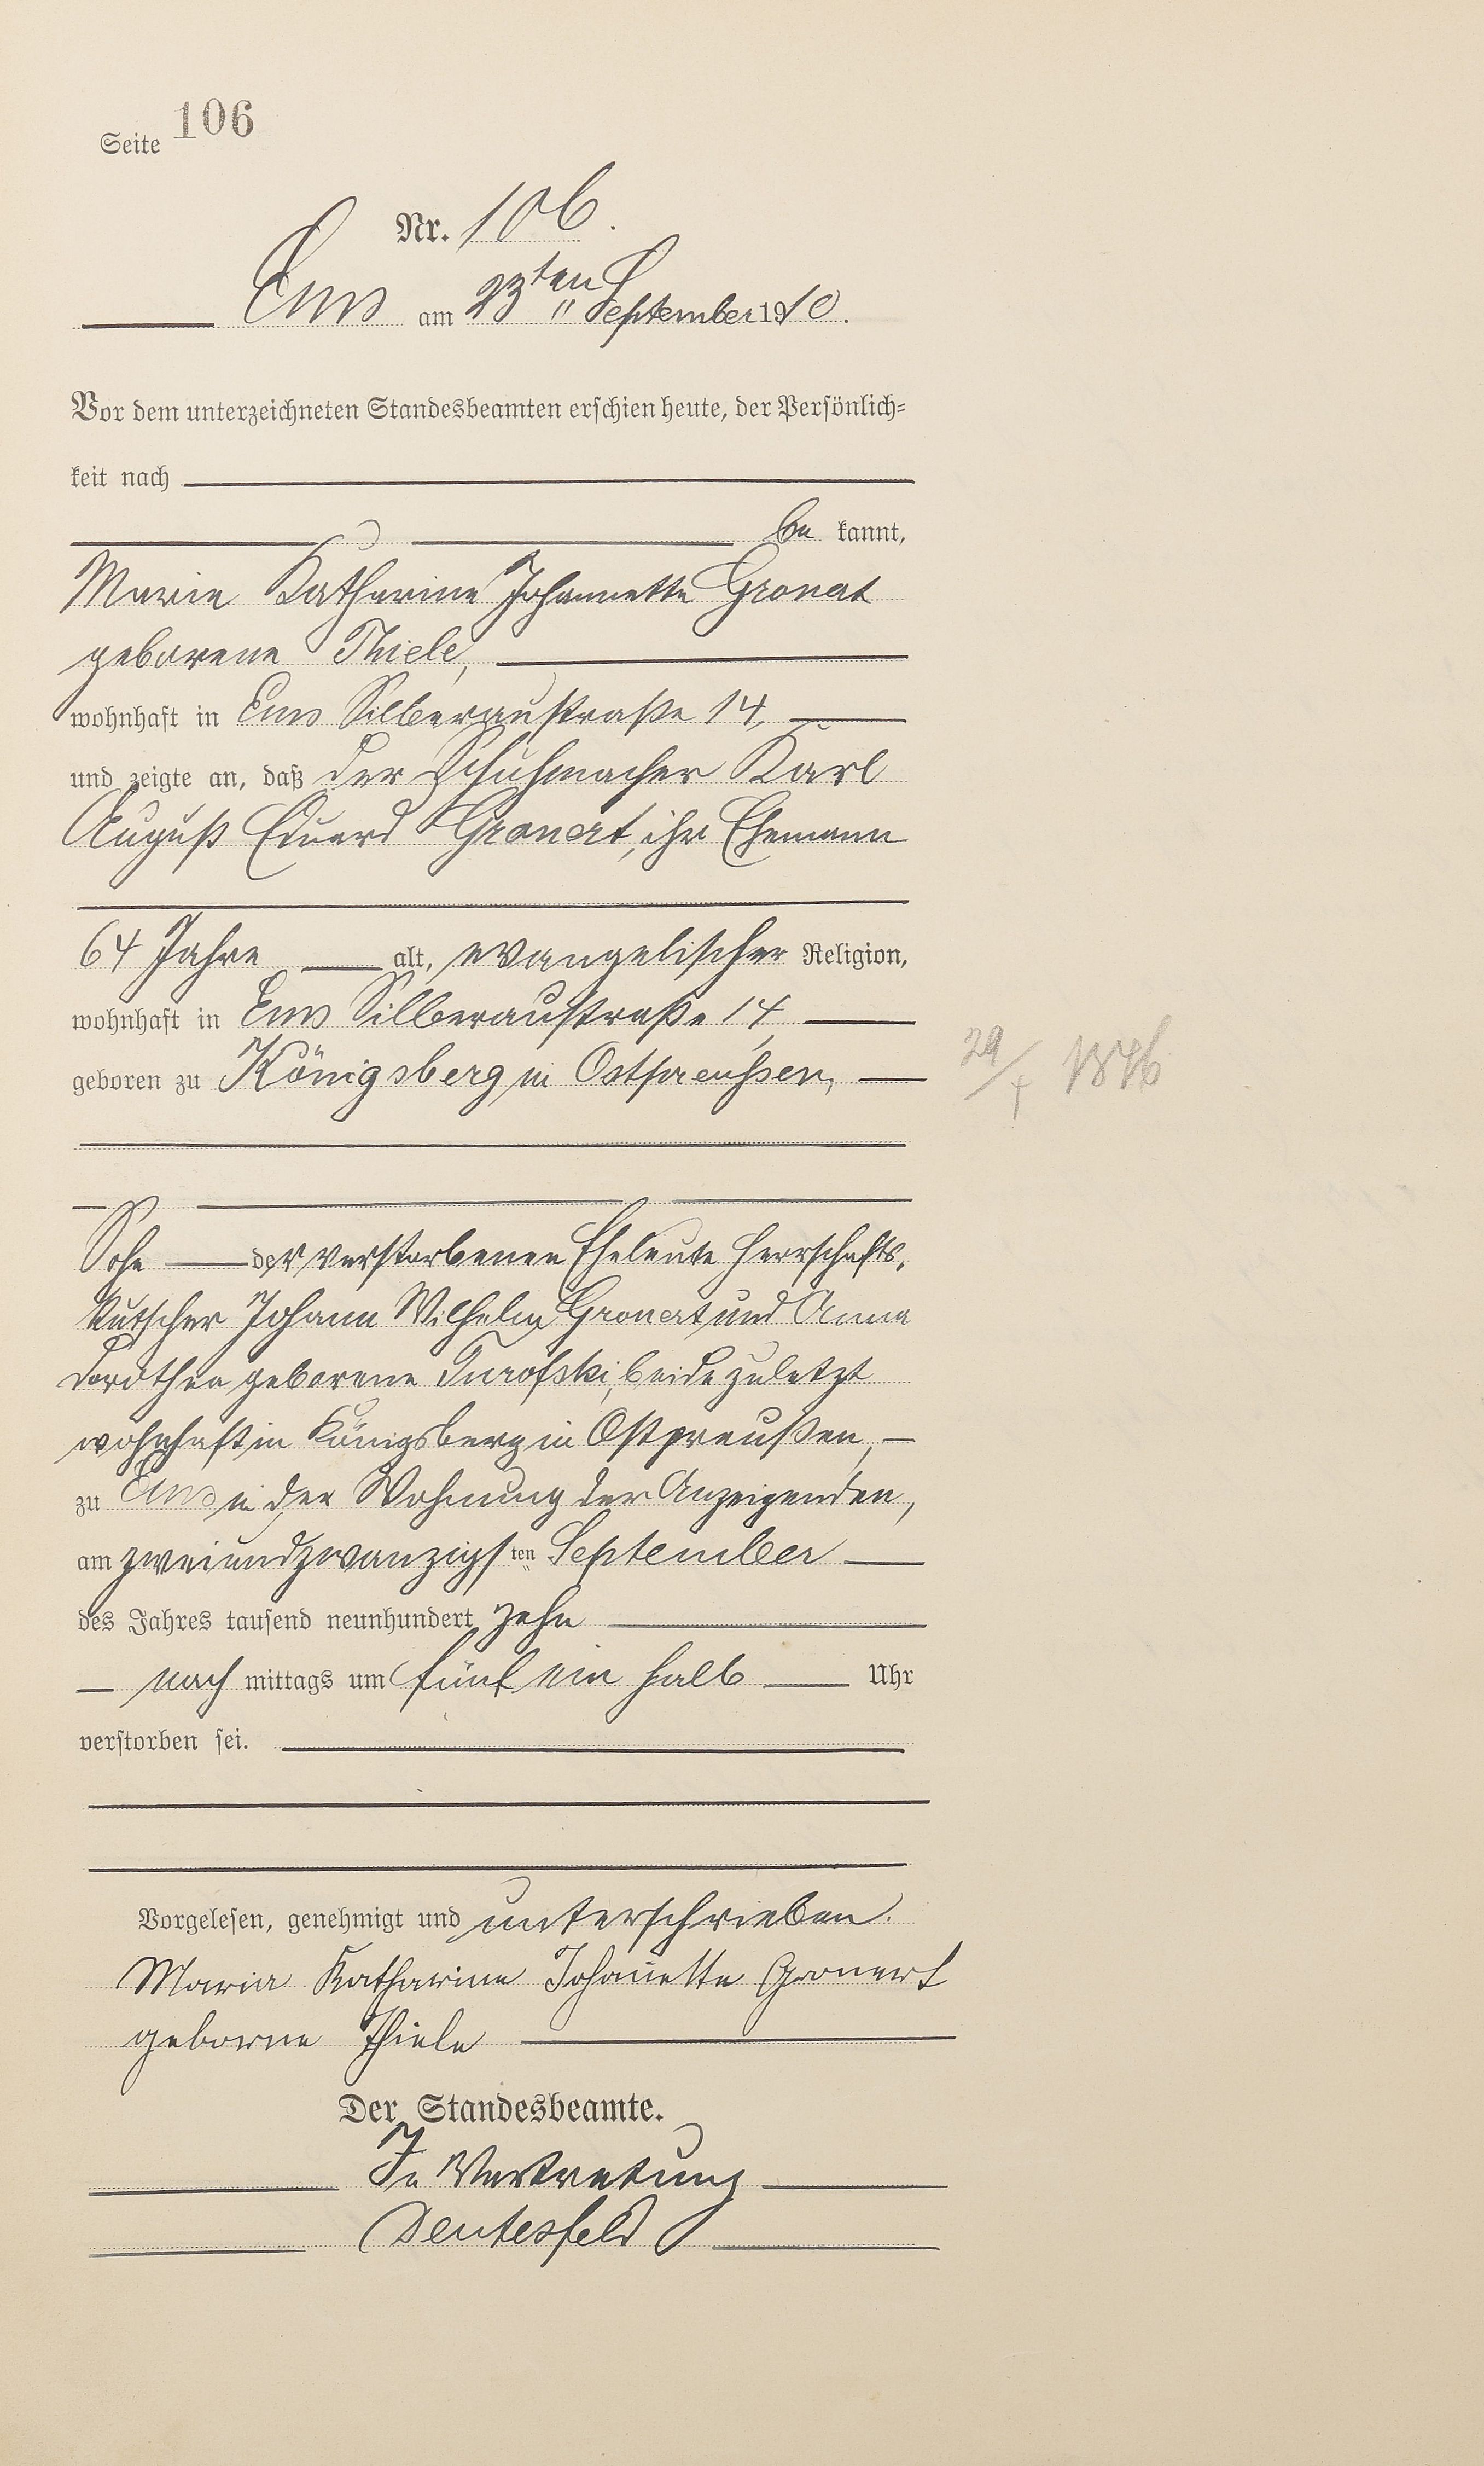 Seite 106
Nr. 106.
Ems am 23ten September 1910.
Vor dem unterzeichneten Standesbeamten erschien heute, der Persönlich-
keit nach
be kannt,
Marie Katharine Johannette Gronert
geborene Thiele,
wohnhaft in Ems Silberaustraße 14,
und zeigte an, daß der Schuhmacher Karl
August Eduard Gronert, ihr Ehemann
64 Jahre alt, evangelischer Religion,
wohnhaft in Ems Silberaustraße 14,
geboren zu Königsberg in Ostpreußen,
29/ 1846
Sohn der verstorbenen Eheleute Herrschafts-
kutscher Johann Wilhelm Gronert und Anna
Dorothea geborene Turofski, beide zuletzt
wohnhaft in Königsberg in Ostpreußen,
zu Ems in der Wohnung der Anzeigenden,
am zweiundzwanzigsten September
des Jahres tausend neunhundert zehn
nach mittags um fünf ein halb Uhr
verstorben sei.
Vorgelesen, genehmigt und unterschrieben.
Maria Katharine Johanette Gronert
geborne Thiele
Der Standesbeamte.
In Vertretung
Deutesfeld